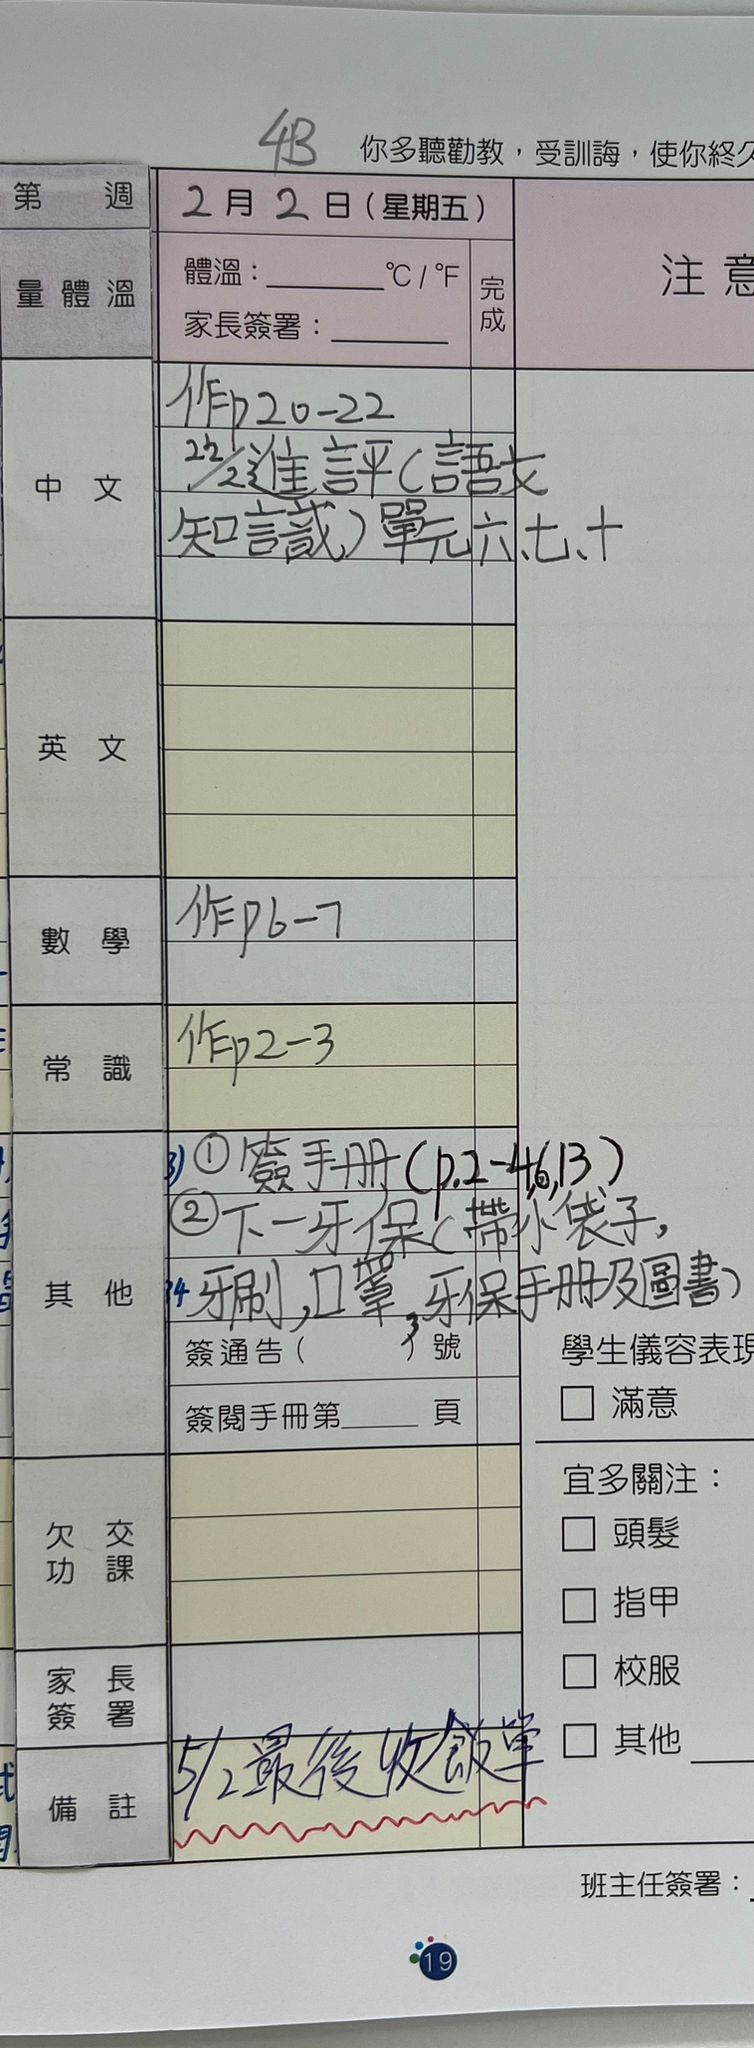 4B
你多聽勸教，受訓誨，使你終久
第 週
2 月 2 日（星期五）
量體溫
體溫：______℃/℉
家長簽署：______
完成
注意
中文
作p20-22
22/2進評(語文
知識)單元六、七、十
英文
數學
作p6-7
常識
作p2-3
其他
①簽手冊(p.2-4,6,13)
②下一牙保(帶小袋子,
牙刷,口罩,牙保手冊及圖書)
簽通告（ ）號
簽閱手冊第____頁
學生儀容表現
□ 滿意
宜多關注：
□ 頭髮
□ 指甲
□ 校服
□ 其他
欠交功課
家長簽署
備註
5/2最後收飯單
班主任簽署：
19